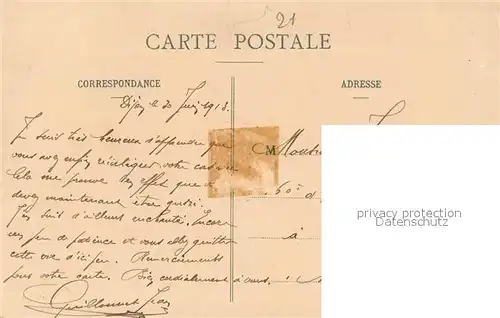 21
CARTE POSTALE
CORRESPONDANCE
ADRESSE
Dijon le 20 Juin 1913.
Je suis très heureux d'apprendre que
vous avez enfin réintégré votre
Cela me prouve en effet que
devez maintenant être guéri.
J'en suit d'ailleurs enchanté. Encore
un peu de patience et vous allez quitter
cette vie d'ici peu. Remerciements
pour votre carte. Bien cordialement à vous.
Guillaumet Jean
CM
à
privacy protection
Datenschutz